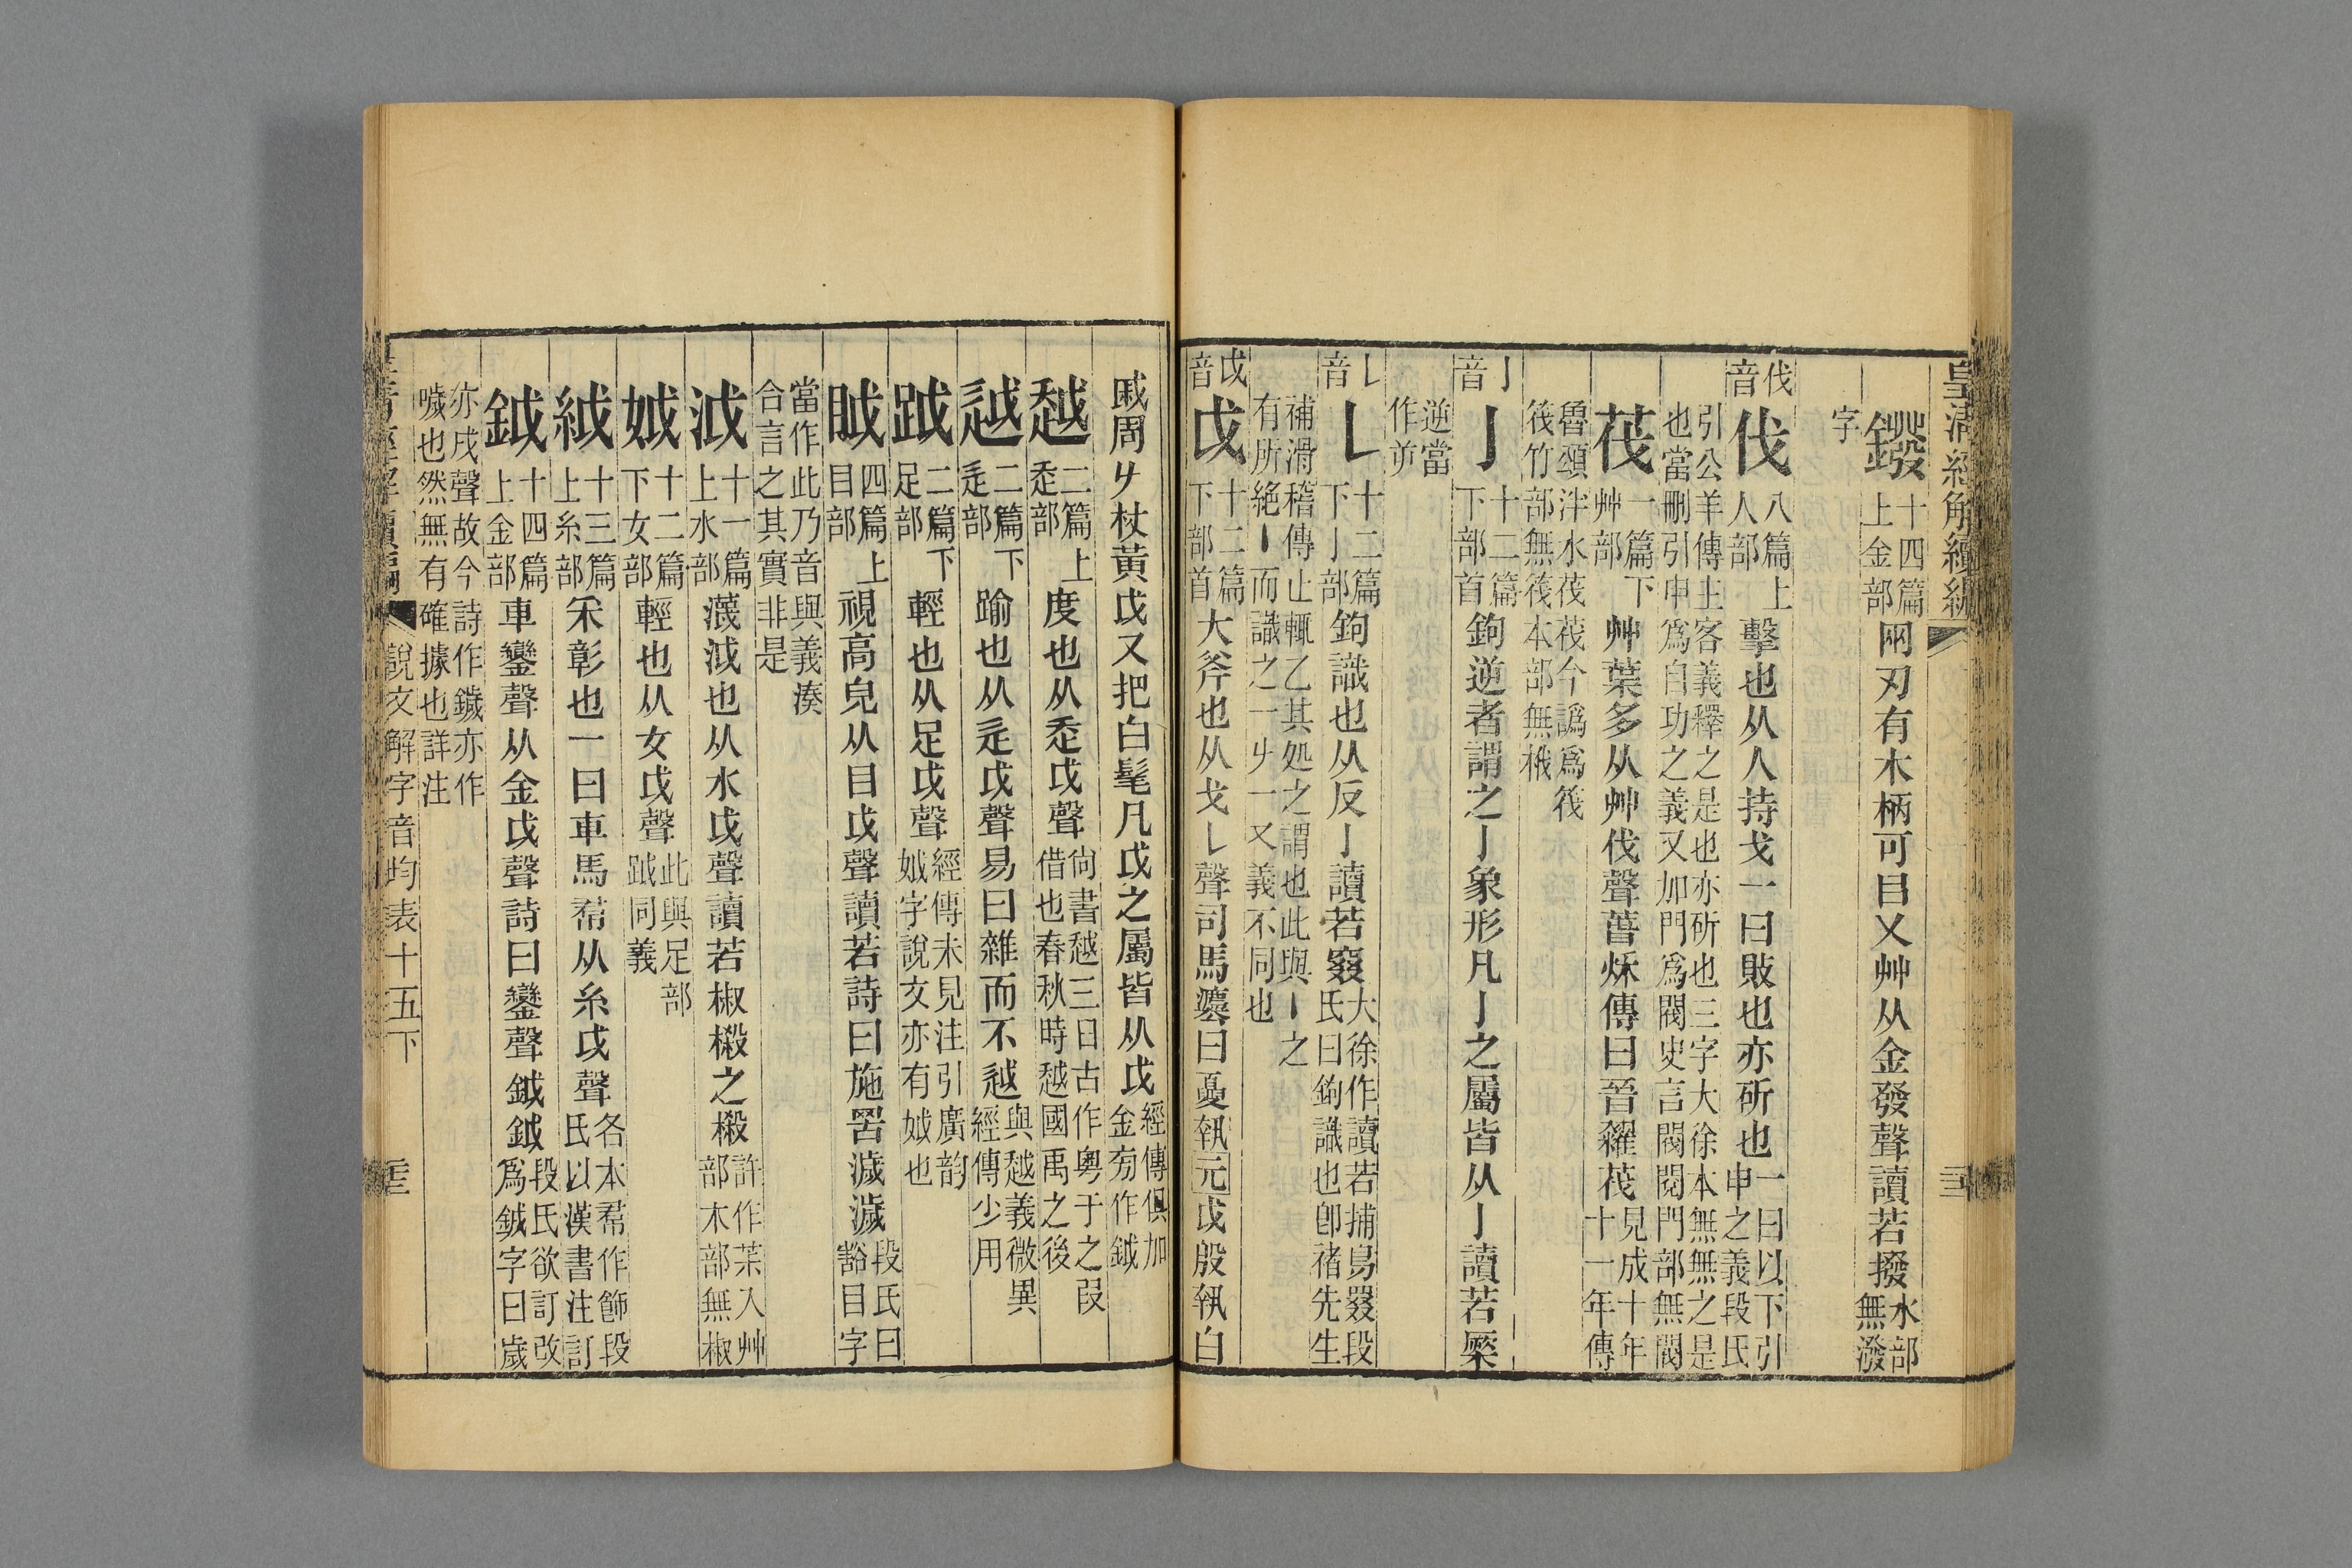 皇清經解續編
鏺十四篇上金部兩刃有木柄可㠯乂艸从金發聲讀若撥水部無潑
字
伐音伐八篇上人部擊也从人持戈一曰敗也亦斫也一曰以下引申之義段氏
引公羊傳主客義釋之是也亦斫也三字大徐本無無之是也當刪引申爲自功之義又加門爲閥史言閥閱門部無閥
茷一篇下艸部艸葉多从艸伐聲萅秌傳曰晉糴茷見成十年十一年傳
魯頌泮水茷茷今譌爲筏筏竹部無筏本部無橃
亅音亅十二篇下部首鉤逆者謂之亅象形凡亅之屬皆从亅讀若橜
逆當作屰
𠄌音𠄌十二篇下亅部鉤識也从反亅讀若窡大徐作讀若捕鳥罬段氏曰鉤識也卽褚先生
補滑稽傳止輒乙其処之謂也此與丨之有所絕丨而識之一ㄓ一又義不同也
戉音戉十二篇下部首大斧也从戈𠄌聲司馬灋曰夏執元戉殷執白
戚周ㄓ杖黃戉又把白髦凡戉之屬皆从戉經傳俱加金㫄作鉞
𧻂二篇上𧺆部度也从𧺆戉聲尙書𧻂三日古作粵于之叚借也春秋時𧻂國禹之後
𨒋二篇下辵部踰也从辵戉聲易曰雜而不𨒋與𧻂義微異經傳少用
跋二篇下足部輕也从足戉聲經傳未見注引廣韵娍字說文亦有娍也
眓四篇上目部視高皃从目戉聲讀若詩曰施罟濊濊段氏曰豁目字
當作此乃音與義湊合言之其實非是
泧十一篇上水部瀎泧也从水戉聲讀若椒樧之樧許作茮入艸部木部無椒
娍十二篇下女部輕也从女戉聲此與足部䟠同義
絨十三篇上糸部采彰也一曰車馬𢂷从糸戉聲各本𢂷作飾段氏以漢書注訂
鉞十四篇上金部車鑾聲从金戉聲詩曰鑾聲鉞鉞段氏欲訂改爲鉞字曰歲
亦戌聲故今詩作鐬亦作噦也然無有確據也詳注
皇清經解續編
說文解字音均表十五下